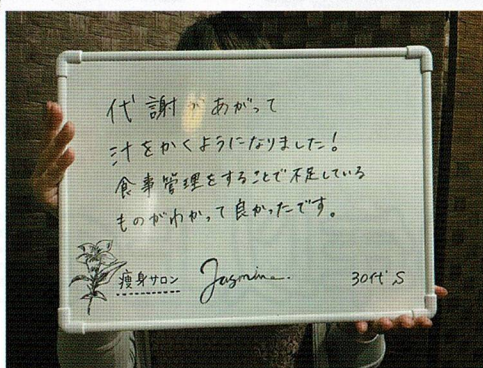 代謝があがって
汁をかくようになりました!
食事管理をすることで不足している
ものがわかって良かったです。
痩身サロン Jasmine. 30代 S